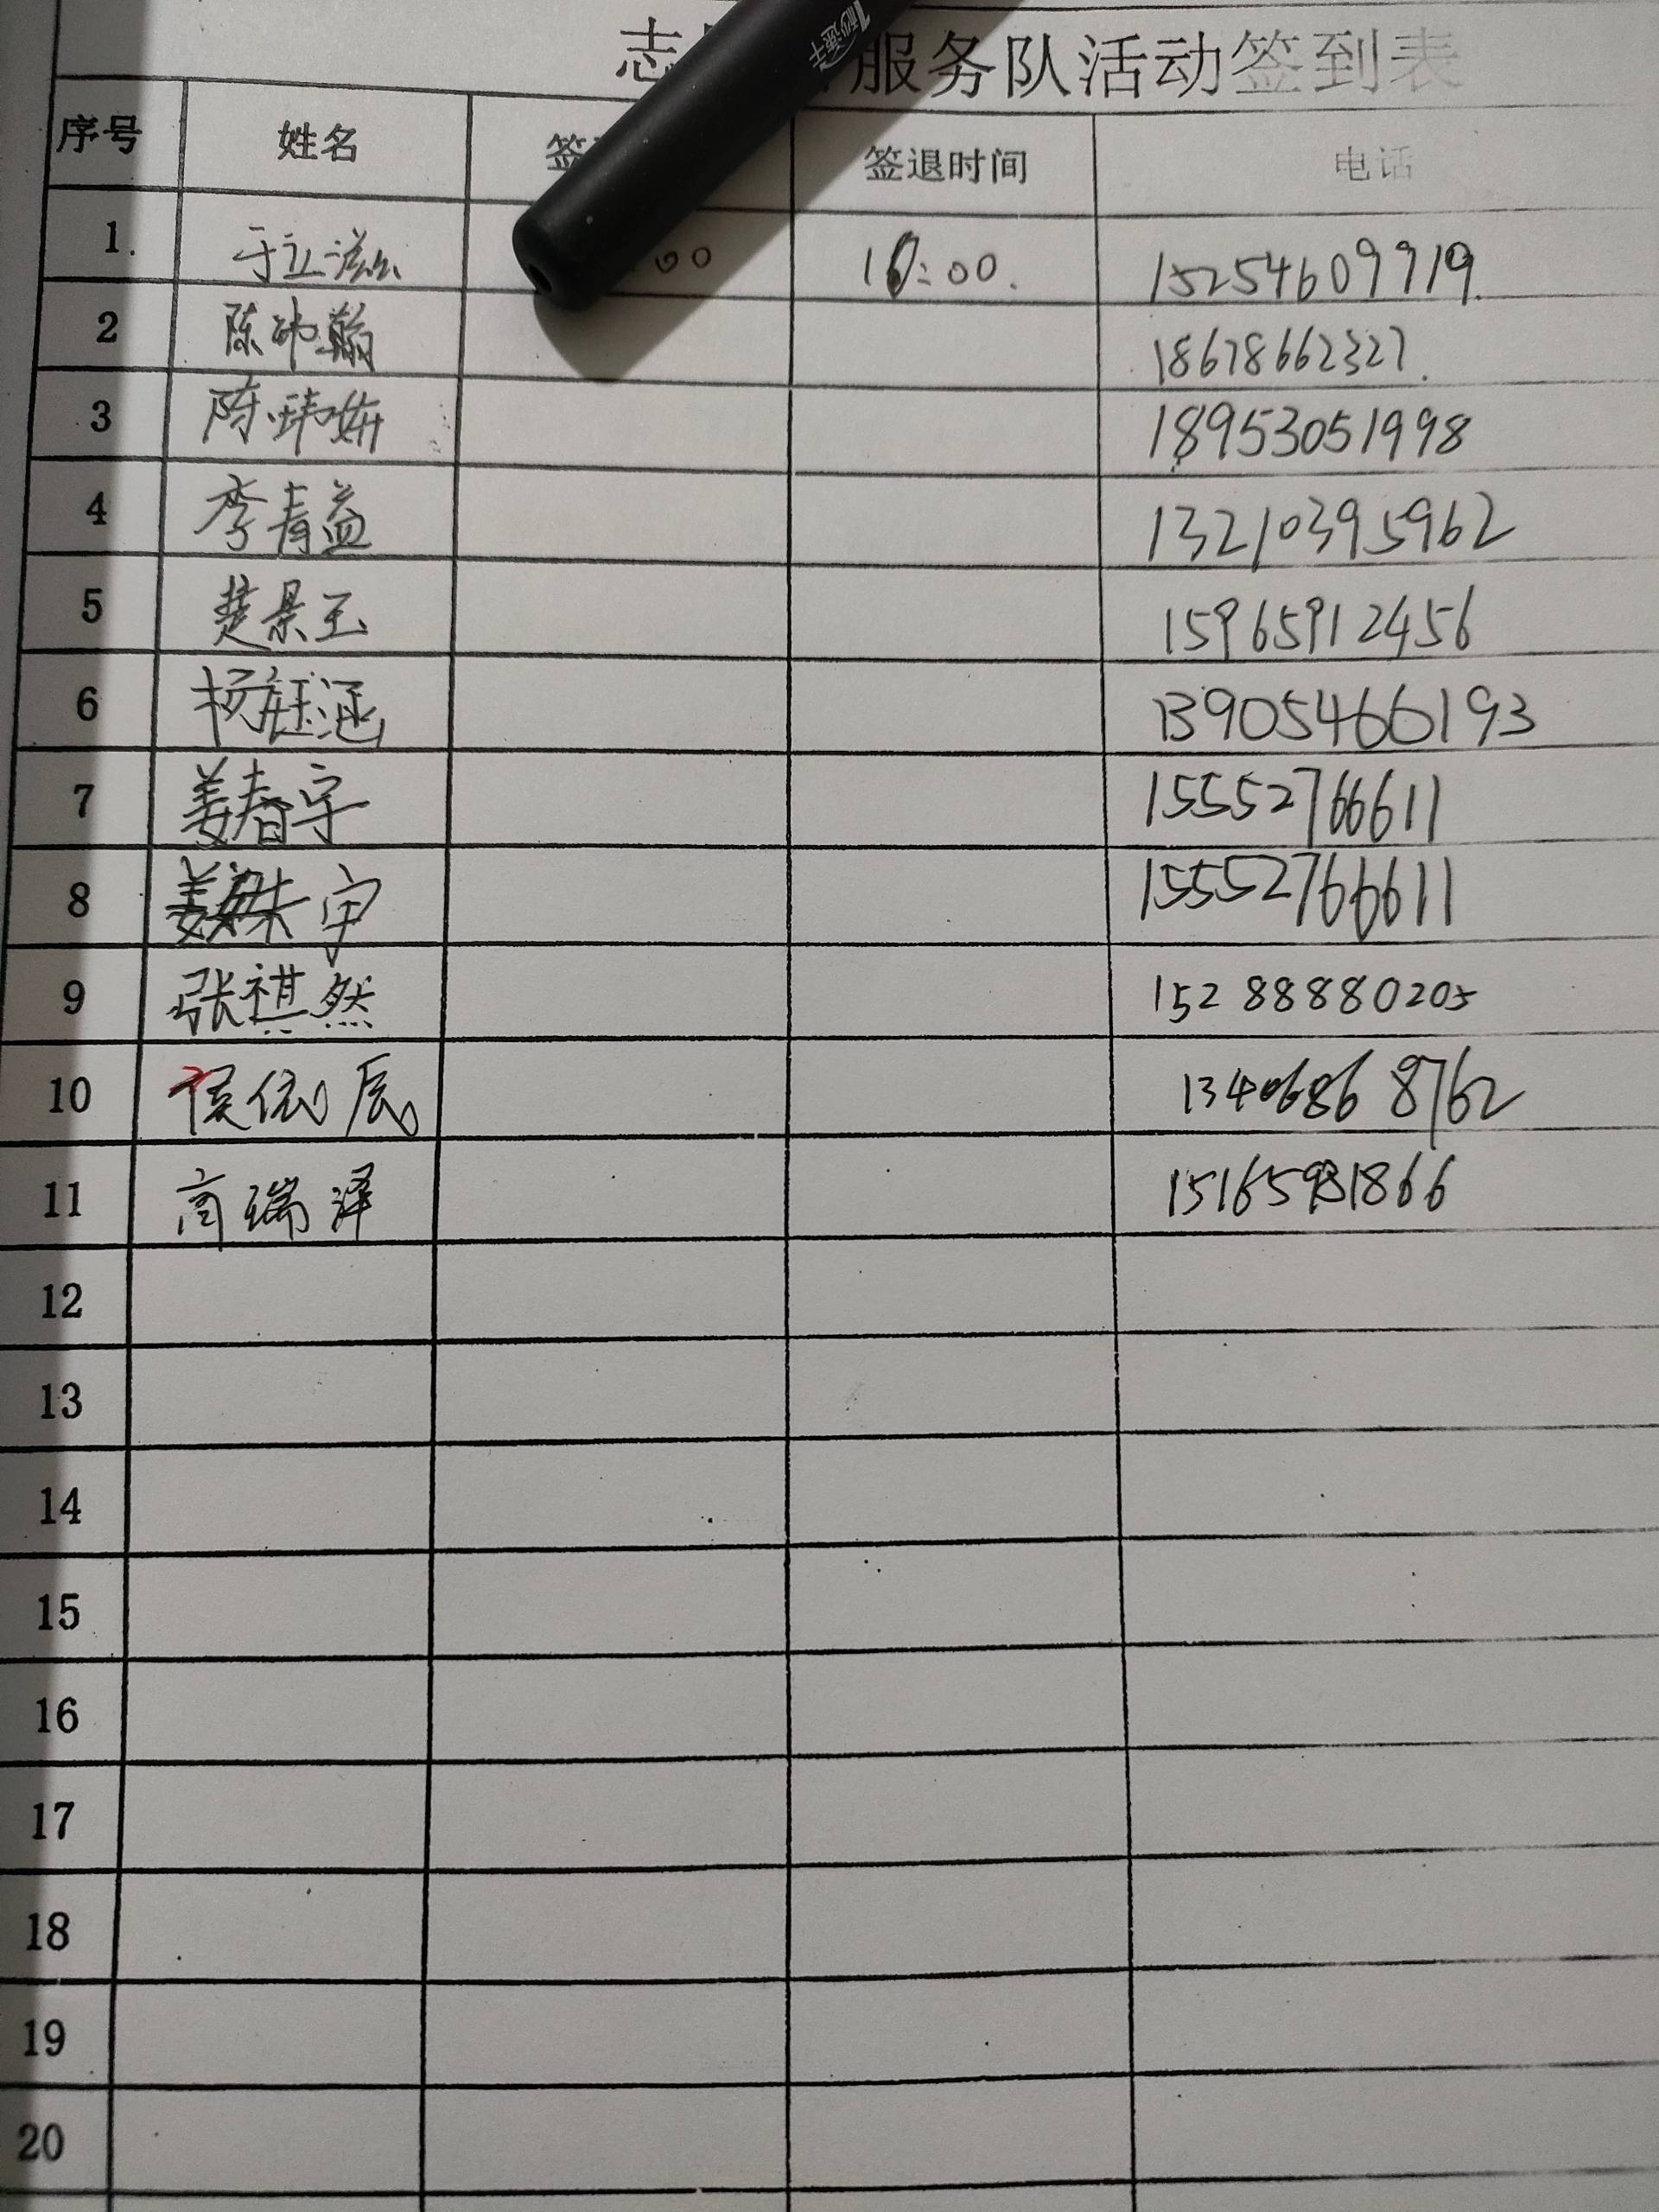 志 服务队活动签到表
1秒速干
序号 姓名 签 签退时间 电话
1. 于立滋 00 16:00. 15254609719.
2 陈祎翰 18678662327.
3 陈玮妍 18953051998
4 李青益 13210395962
5 楚景玉 15965912456
6 杨钰涵 13905466193
7 姜春宇 15552766611
8 姜 宇 15552766611
9 张祺然 15288880205
10 侯依辰 13406868762
11 高瑞泽 15165981866
12
13
14
15
16
17
18
19
20